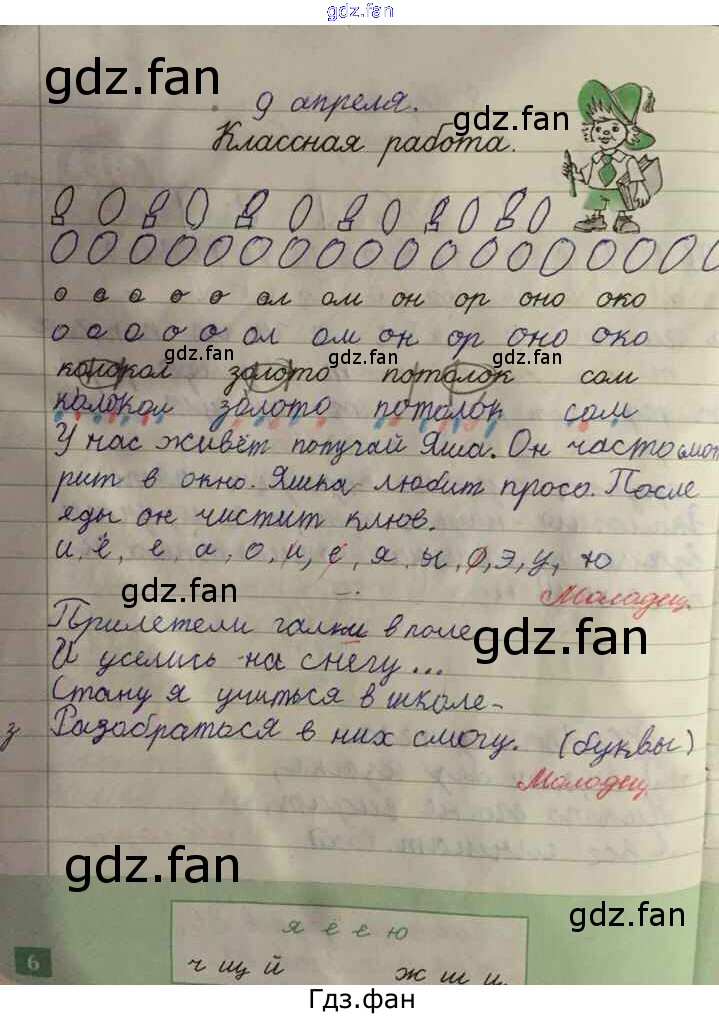 gdz.fan
gdz.fan
9 апреля.
gdz.fan
Классная работа.
о о о о о ол ом он ор оно око
о о о о о ол ом он ор оно око
gdz.fan gdz.fan gdz.fan
колокол золото потолок сом
колокол золото потолок сом
У нас живёт попугай Яша. Он часто смот
рит в окно. Яшка любит просо. После
еды он чистит клюв.
и, ё, е, а, о, и, е, я, ы, о, э, у, ю
gdz.fan
Молодец.
Прилетели галки в поле
gdz.fan
И уселись на снегу...
Стану я учиться в школе-
з Разобраться в них смогу. (буквы)
Молодец
gdz.fan
gdz.fan
я ё е ю
6
ч щ й ж ш ц
Гдз.фан